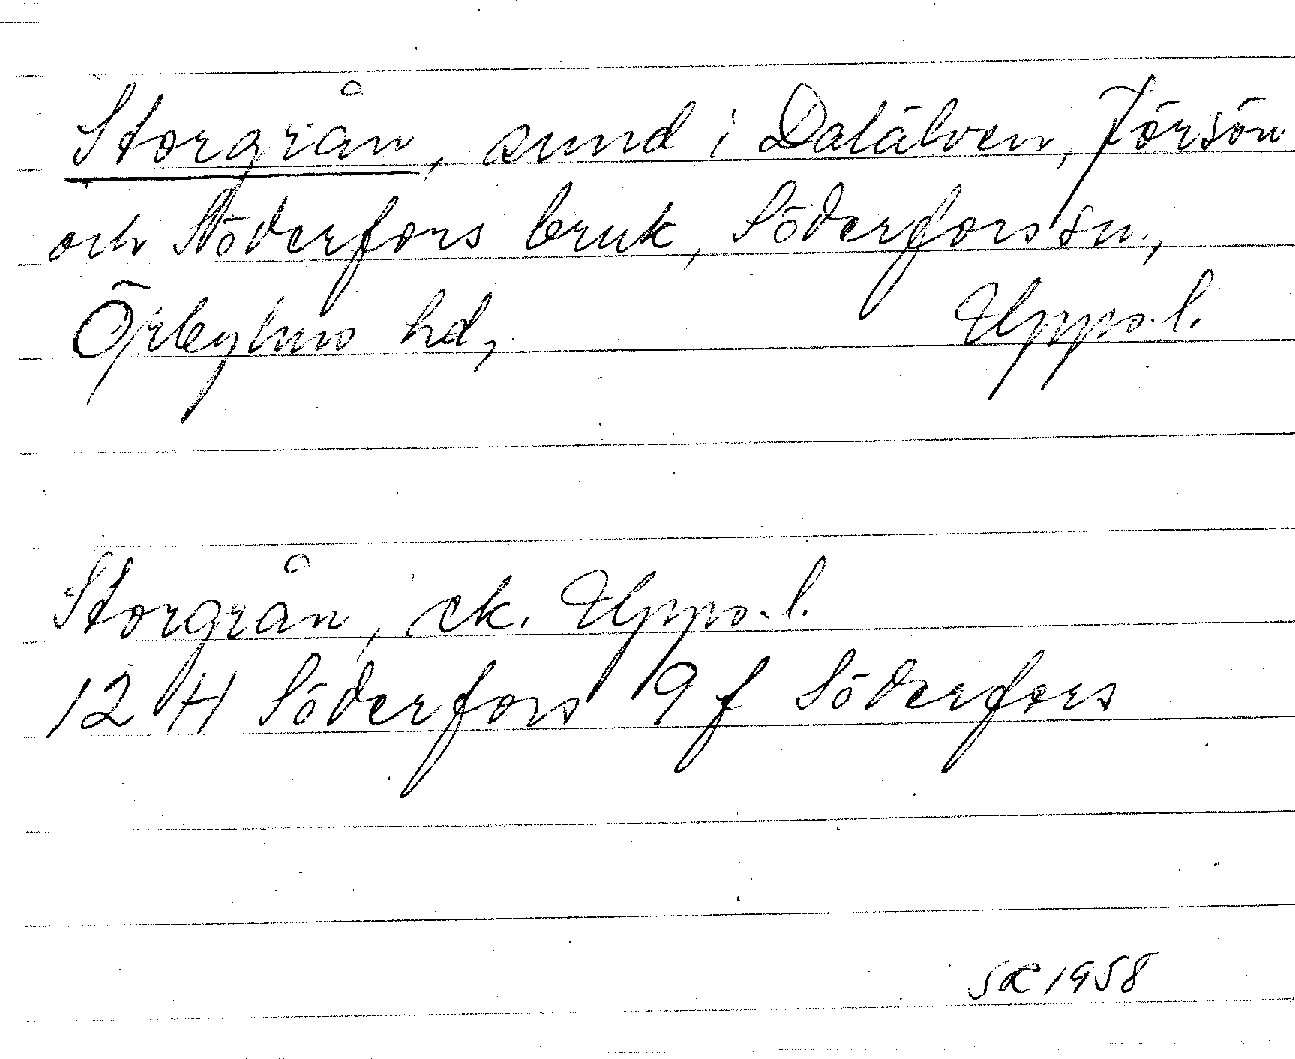 Storgrån, sund i Dalälven, Jörsön
och Söderfors bruk, Söderfors sn,
Örbyhus hd, Upps. l.
Storgrån, ek. Upps. l.
12 H Söderfors 9 f Söderfors
1958